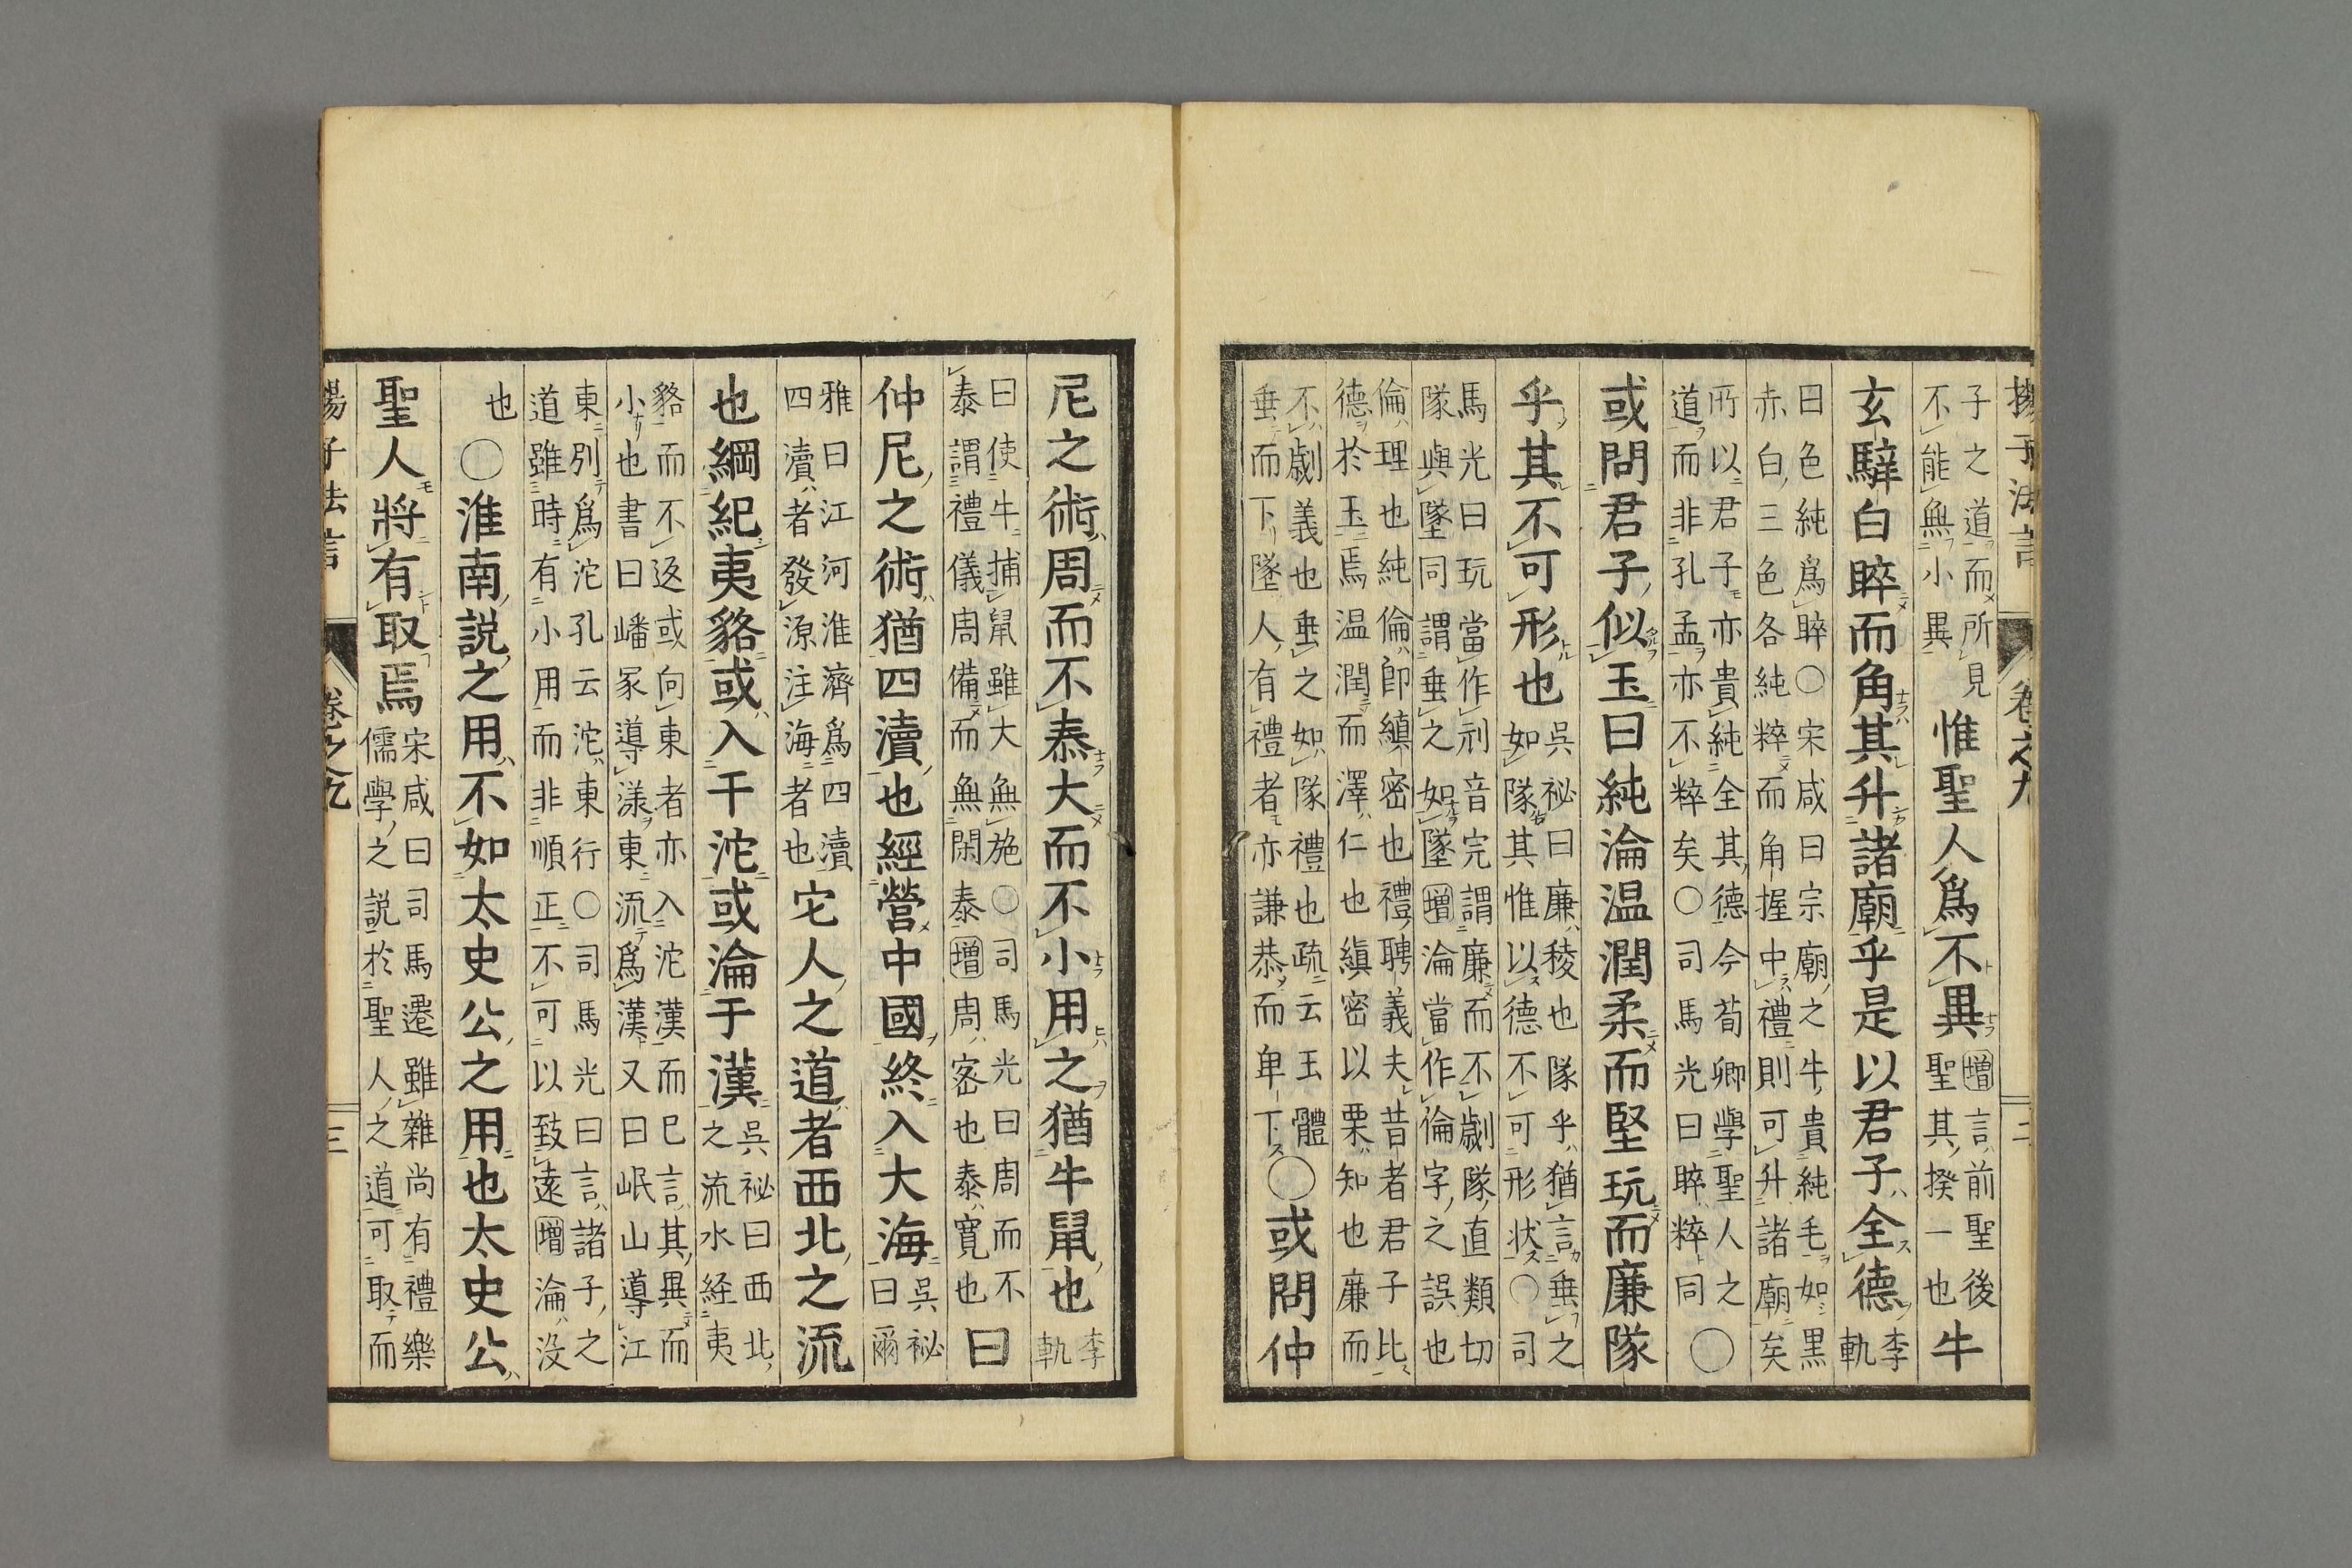 揚子法言 卷之九 二
子之道而所見
不能無小異
惟聖人爲不異
增言前聖後
聖其揆一也
牛
玄騂白睟而角其升諸廟乎是以君子全德
李
軌
曰色純爲睟○宋咸曰宗廟之牛貴純毛如黒
赤白三色各純粹而角握中禮則可升諸廟矣
所以君子亦貴純全其德今荀卿學聖人之
道而非孔孟亦不粹矣○司馬光曰睟粹同
○
或問君子似玉曰純淪温潤柔而堅玩而廉隊
乎其不可形也
呉祕曰廉稜也隊乎猶言垂之
如隊其惟以德不可形状○司
馬光曰玩當作刓音完謂廉而不劌隊直類切
隊與墜同謂垂之如墜增淪當作倫字之誤也
倫理也純倫即縝密也禮聘義夫昔者君子比
德於玉焉温潤而澤仁也縝密以栗知也廉而
不劌義也垂之如隊禮也疏云玉體
垂而下墜人有禮者亦謙恭而卑下
○或問仲
尼之術周而不泰大而不小用之猶牛鼠也
李
軌
曰使牛捕鼠雖大無施○司馬光曰周而不
泰謂禮儀周備而無閑泰增周密也泰寛也
曰
仲尼之術猶四瀆也經營中國終入大海
呉祕
曰爾
雅曰江河淮濟爲四瀆
四瀆者發源注海者也
它人之道者西北之流
也綱紀夷貉或入于沱或淪于漢
呉祕曰西北
之流水経夷
貉而不返或向東者亦入沱漢而已言其異而
小也書曰嶓冢導漾東流爲漢又曰岷山導江
東別爲沱孔云沱東行○司馬光曰言諸子之
道雖時有小用而非順正不可以致遠增淪没
也
○淮南説之用不如太史公之用也太史公
聖人將有取焉
宋咸曰司馬遷雖雜尚有禮樂
儒學之説於聖人之道可取而
揚子法言 卷之九 三